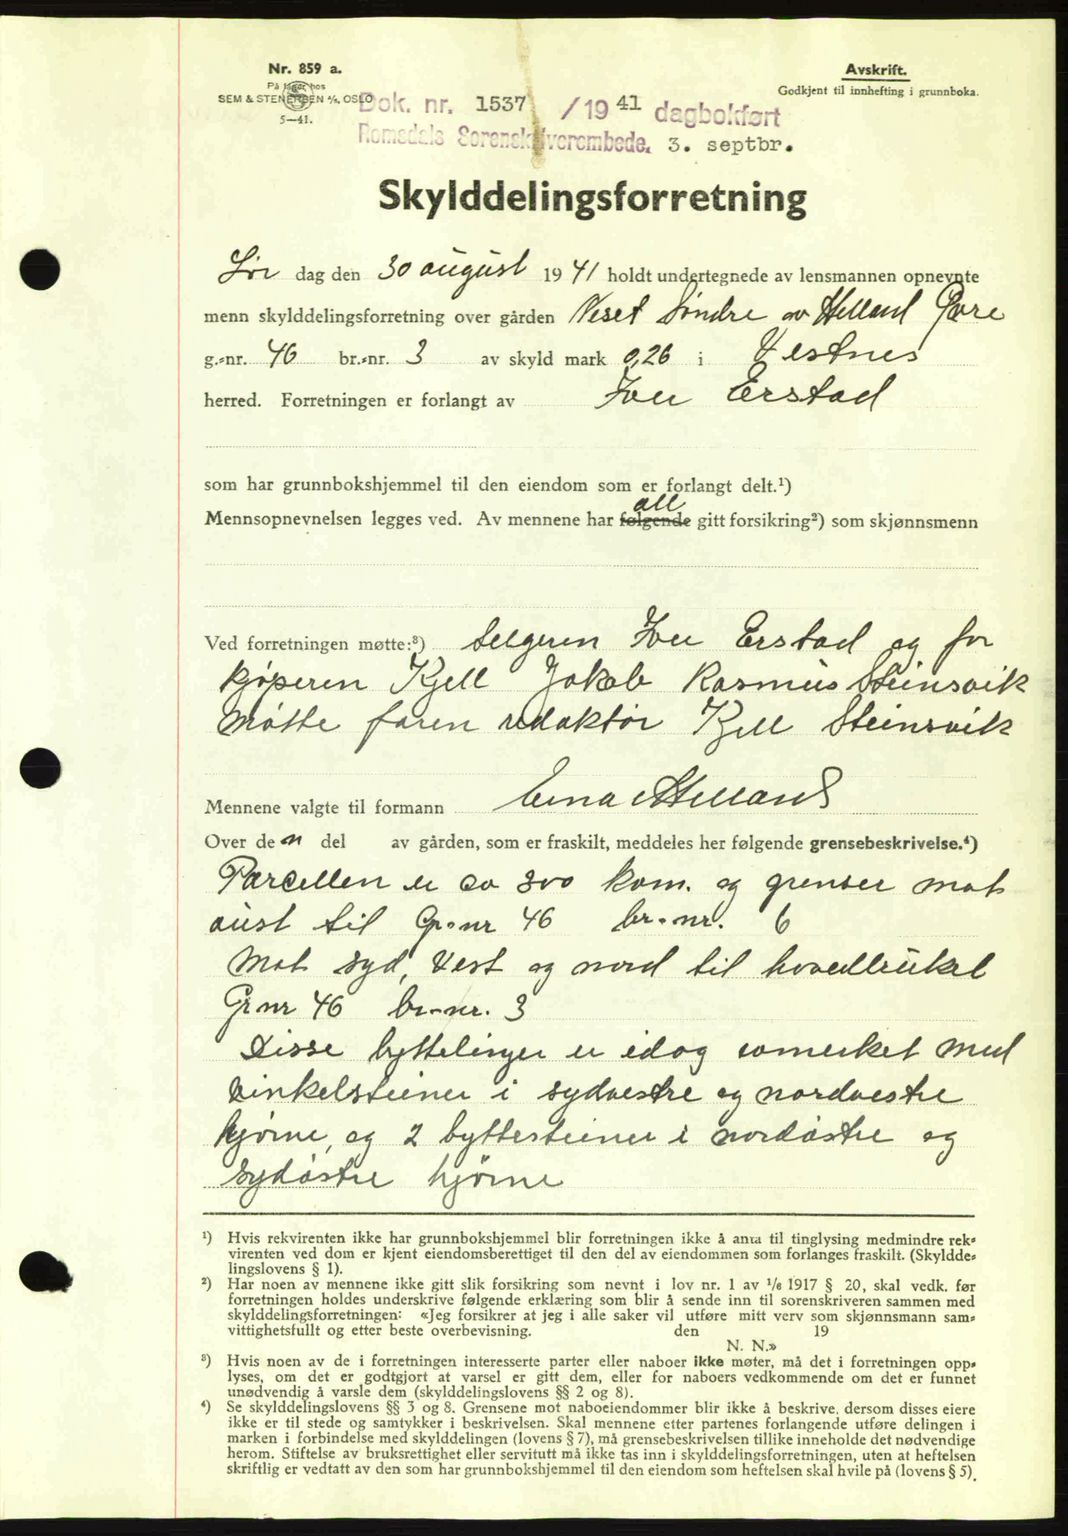 Nr. 859 a.
På lager hos
SEM & STENERSEN A/S, OSLO
5—41.
Avskrift.
Godkjent til innhefting i grunnboka.
Dok. nr. 1537 /19 41 dagbokført
Romsdals Sorenskriverembede. 3. septbr.
Skylddelingsforretning
Lør dag den 30 august 19 41 holdt undertegnede av lensmannen opnevnte
menn skylddelingsforretning over gården Neset Søndre av Helland Øvre
g.-nr. 46 br.-nr. 3 av skyld mark 0,26 i Vestnes
herred. Forretningen er forlangt av Iver Erstad
som har grunnbokshjemmel til den eiendom som er forlangt delt.¹)
all
Mennsopnevnelsen legges ved. Av mennene har følgende gitt forsikring²) som skjønnsmenn
Ved forretningen møtte:³) selgeren Iver Erstad og for
kjøperen Kjell Jakob Rasmus Steinsvik
møtte faren redaktør Kjell Steinsvik
Mennene valgte til formann Einar Helland
Over de n del av gården, som er fraskilt, meddeles her følgende grensebeskrivelse.⁴)
Parcellen er ca 300 kvm. og grenser mot
aust til Gr.nr 46 br.nr. 6
Mot syd, Vest og nord til hovedbruket
Gr nr 46 br.nr. 3
Disse byttelinjer er idag avmerket med
vinkelsteiner i sydvestre og nordvestre
hjørne, og 2 byttesteiner i nordøstre og
sydøstre hjørne
¹) Hvis rekvirenten ikke har grunnbokshjemmel blir forretningen ikke å anta til tinglysing medmindre rek-
virenten ved dom er kjent eiendomsberettiget til den del av eiendommen som forlanges fraskilt. (Skyldde-
lingslovens § 1).
²) Har noen av mennene ikke gitt slik forsikring som nevnt i lov nr. 1 av ¹/₆ 1917 § 20, skal vedk. før
forretningen holdes underskrive følgende erklæring som blir å sende inn til sorenskriveren sammen med
skylddelingsforretningen: «Jeg forsikrer at jeg i alle saker vil utføre mitt verv som skjønnsmann sam-
vittighetsfullt og etter beste overbevisning. den 19
N. N.»
³) Hvis noen av de i forretningen interesserte parter eller naboer ikke møter, må det i forretningen opp-
lyses, om det er godtgjort at varsel er gitt dem, eller for naboers vedkommende om det er funnet
unødvendig å varsle dem (skylddelingslovens §§ 2 og 8).
⁴) Se skylddelingslovens §§ 3 og 8. Grensene mot naboeiendommer blir ikke å beskrive, dersom disses eiere
ikke er til stede og samtykker i beskrivelsen. Skal mennene etter partenes forlangende utføre delingen i
marken i forbindelse med skylddelingen (lovens § 7), må grensebeskrivelsen tillike inneholde det nødvendige
herom. Stiftelse av bruksrettighet eller servitutt må ikke tas inn i skylddelingsforretningen, uten at heftelsen
skriftlig er vedtatt av den som har grunnbokshjemmel til den eiendom som heftelsen skal hvile på (lovens § 5).